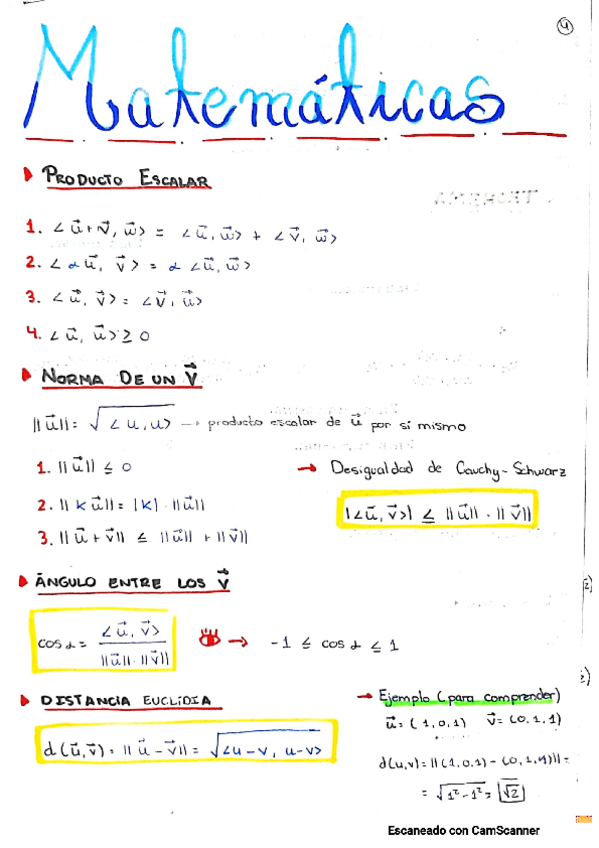 4
Matemáticas
PRODUCTO ESCALAR
1. <u⃗+v⃗, w⃗> = <u⃗, w⃗> + <v⃗, w⃗>
2. <αu⃗, v⃗> = α <u⃗, w⃗>
3. <u⃗, v⃗> = <v⃗, u⃗>
4. <u⃗, u⃗> ≥ 0
NORMA DE UN V⃗
||u⃗|| = √<u, u> → producto escalar de u⃗ por sí mismo
1. ||u⃗|| ≤ 0
→ Desigualdad de Cauchy-Schwarz
2. ||k u⃗|| = |k| · ||u⃗||
|<u⃗, v⃗>| ≤ ||u⃗|| · ||v⃗||
3. ||u⃗ + v⃗|| ≤ ||u⃗|| + ||v⃗||
ÁNGULO ENTRE LOS V⃗
cos α = <u⃗, v⃗> / ||u⃗|| · ||v⃗||
→ -1 ≤ cos α ≤ 1
DISTANCIA EUCLÍDIA
d(u⃗, v⃗) = ||u⃗ - v⃗|| = √<u-v, u-v>
→ Ejemplo (para comprender)
u⃗ = (1,0,1) v⃗ = (0,1,1)
d(u,v) = ||(1,0,1) - (0,1,1)|| =
= √1²-1² = √2
Escaneado con CamScanner